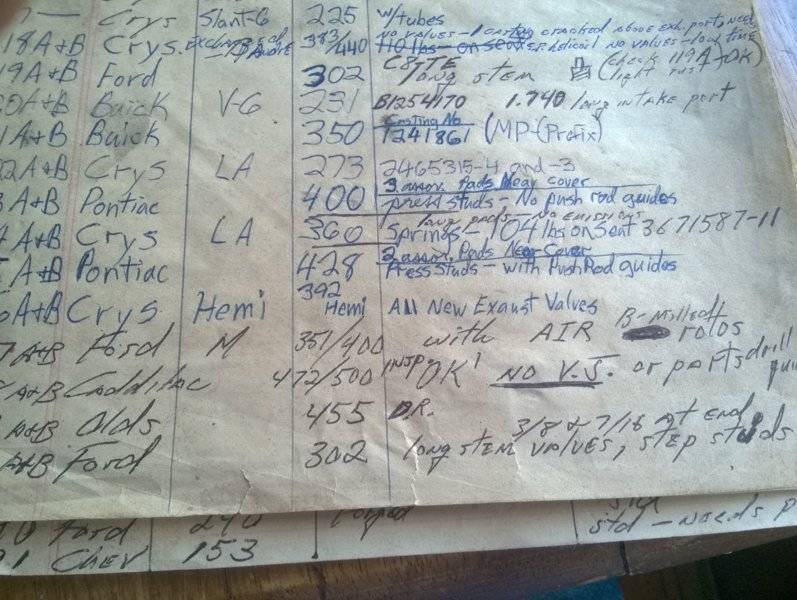 Crys Slant-6 225 w/tubes
18A+B Crys. 383/440 NO VALVES - 1 casting cracked above exh. ports need
110 lbs - on seat NO VALVES - low time
19A+B Ford 302 C8-TE long stem (check 119A-OK) light rust
20A+B Buick V-6 231 B1254170 1.740 long intake port
1A+B Buick 350 Casting No 1241861 (MP-(Prefix)
22A+B Crys LA 273 2465315-4 and -3
3A+B Pontiac 400 3 assor. Pads Near cover
press studs - No push rod guides
A+B Crys LA 360 Springs - 104 lbs on Seat 3671587-11
A+B Pontiac 428 2 assor. Pads Near Cover
Press Studs - with Push Rod guides
6A+B Crys Hemi 392 Hemi All New Exaust Valves
7 A+B Ford M 351/400 with AIR B- rotos
A+B Caddilac 472/500 INSP "OK" NO V.J. or parts drill
A+B Olds 455 D.R. 3/8 & 7/16 At End
A+B Ford 302 long stem VALVES, step studs
Ford 240 std - needs
1 Chev 153